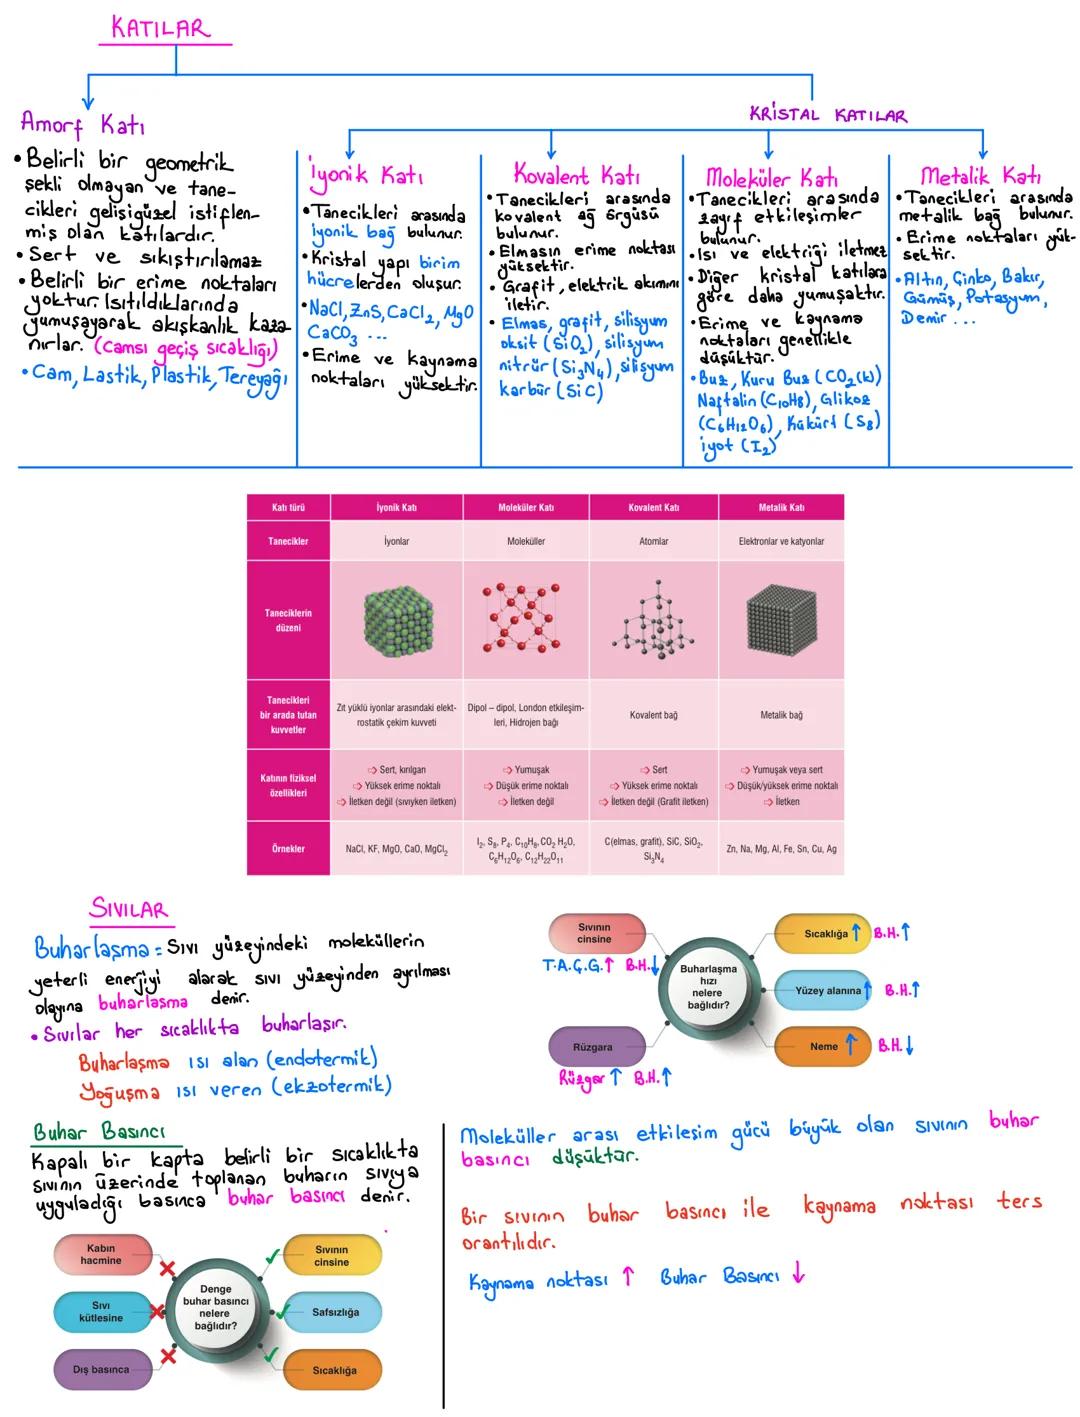 KATILAR
Amorf Katı
• Belirli bir geometrik
şekli olmayan ve tane-
cikleri gelişigüzel istiflen-
miş olan katılardır.
• Sert ve sıkıştırılamaz
• Belirli bir erime noktaları
yoktur. Isıtıldıklarında
yumuşayarak akışkanlık kaza
nırlar. (camsı geçiş sıcaklığı)
• Cam, Lastik, Plastik, Tereyağı
KRİSTAL KATILAR
İyonik Katı
• Tanecikleri arasında
iyonik bağ bulunur.
• Kristal yapı birim
hücrelerden oluşur.
• NaCl, ZnS, CaCl2, MgO
CaCO3 ...
• Erime ve Kaynama
noktaları yüksektir.
Kovalent Katı
• Tanecikleri arasında
kovalent ağ örgüsü
bulunur.
• Elmasın erime noktası
yüksektir.
• Grafit, elektrik akımını
iletir.
• Elmas, grafit, silisyum
oksit (SiO2), silisyum
nitrür (Si3N4), silisyum
karbür (SiC)
Moleküler Katı
• Tanecikleri arasında
zayıf etkileşimler
bulunur.
• Isı ve elektriği iletmez
• Diğer kristal katılara
göre daha yumuşaktır.
• Erime ve kaynama
noktaları genellikle
düşüktür.
• Buz, Kuru Buz (CO2(k))
Naftalin (C10H8), Glikoz
(C6H12O6), Kükürt (S8)
iyot (I2)
Metalik Katı
• Tanecikleri arasında
metalik bağ bulunur.
• Erime noktaları yük-
sektir.
• Altın, Çinko, Bakır,
Gümüş, Potasyum,
Demir ...
Katı türü İyonik Katı Moleküler Katı Kovalent Katı Metalik Katı
Tanecikler İyonlar Moleküller Atomlar Elektronlar ve katyonlar
Taneciklerin
düzeni
Tanecikleri
bir arada tutan
kuvvetler
Zıt yüklü iyonlar arasındaki elekt-
rostatik çekim kuvveti
Dipol – dipol, London etkileşim-
leri, Hidrojen bağı
Kovalent bağ
Metalik bağ
Katının fiziksel
özellikleri
⇨ Sert, kırılgan
⇨ Yüksek erime noktalı
⇨ İletken değil (sıvıyken iletken)
⇨ Yumuşak
⇨ Düşük erime noktalı
⇨ İletken değil
⇨ Sert
⇨ Yüksek erime noktalı
⇨ İletken değil (Grafit iletken)
⇨ Yumuşak veya sert
⇨ Düşük/yüksek erime noktalı
⇨ İletken
Örnekler
NaCl, KF, MgO, CaO, MgCl2
I2, S8, P4, C10H8, CO2 H2O,
C6H12O6, C12H22O11
C(elmas, grafit), SiC, SiO2,
Si3N4
Zn, Na, Mg, Al, Fe, Sn, Cu, Ag
SIVILAR
Buharlaşma = Sıvı yüzeyindeki moleküllerin
yeterli enerjiyi alarak sıvı yüzeyinden ayrılması
olayına buharlaşma denir.
• Sıvılar her sıcaklıkta buharlaşır.
Buharlaşma ısı alan (endotermik)
Yoğuşma ısı veren (ekzotermik)
Sıvının
cinsine
T.A.Ç.G.↑ B.H.↓
Rüzgara
Rüzgar ↑ B.H.↑
Buharlaşma
hızı
nelere
bağlıdır?
Sıcaklığa ↑ B.H.↑
Yüzey alanına ↑ B.H.↑
Neme ↑ B.H.↓
Buhar Basıncı
Kapalı bir kapta belirli bir sıcaklıkta
sıvının üzerinde toplanan buharın sıvıya
uyguladığı basınca buhar basıncı denir.
Kabın
hacmine
Sıvı
kütlesine
Dış basınca
Denge
buhar basıncı
nelere
bağlıdır?
Sıvının
cinsine
Safsızlığa
Sıcaklığa
Moleküller arası etkileşim gücü büyük olan sıvının buhar
basıncı düşüktür.
Bir sıvının buhar basıncı ile kaynama noktası ters
orantılıdır.
Kaynama noktası ↑ Buhar Basıncı ↓